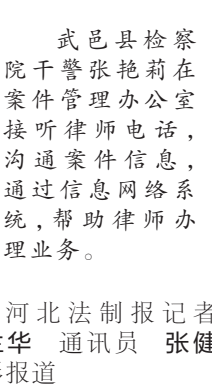 武邑县检察
院干警张艳莉在
案件管理办公室
接听律师电话，
沟通案件信息，
通过信息网络系
统，帮助律师办
理业务。
河北法制报记者
华 通讯员 张健
报道